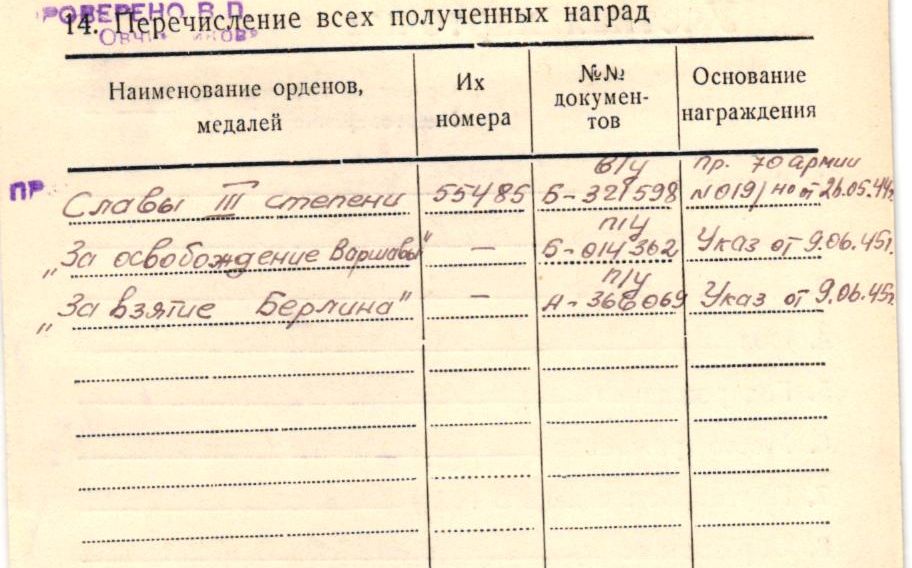 РОВЕРЕНО В.Д.
14. Перечисление всех полученных наград
Наименование орденов, медалей
Их номера
№№ документов
Основание награждения
ПР
Славы III степени 55485 в/у Б-321598 пр. 70 армии N 019/но от 26.05.44г.
„За освобождение Варшавы" — п/у Б-014362 Указ от 9.06.45г.
„За взятие Берлина" — п/у А-366069 Указ от 9.06.45г.